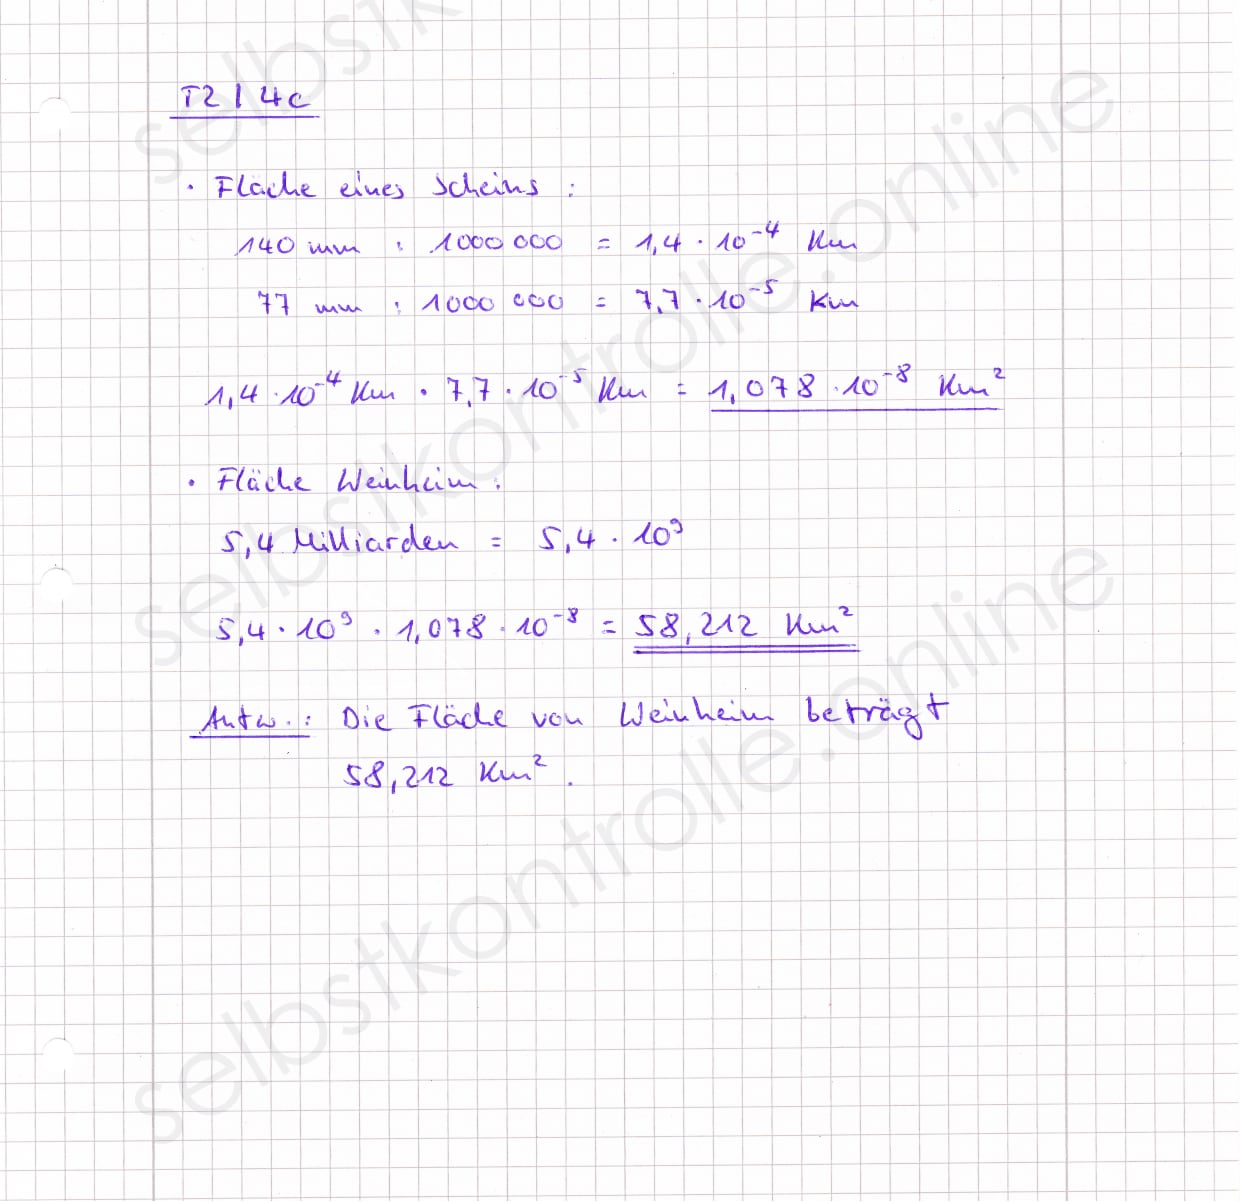 T2 / 4c
· Fläche eines Scheins :
140 mm : 1000 000 = 1,4 · 10⁻⁴ Km
77 mm : 1000 000 = 7,7 · 10⁻⁵ Km
1,4 · 10⁻⁴ Km · 7,7 · 10⁻⁵ Km = 1,078 · 10⁻⁸ Km²
· Fläche Weinheim :
5,4 Milliarden = 5,4 · 10⁹
5,4 · 10⁹ · 1,078 · 10⁻⁸ = 58,212 Km²
Antw. : Die Fläche von Weinheim beträgt
58,212 Km² .
selbstkontrolle.online
selbstkontrolle.online
selbstk